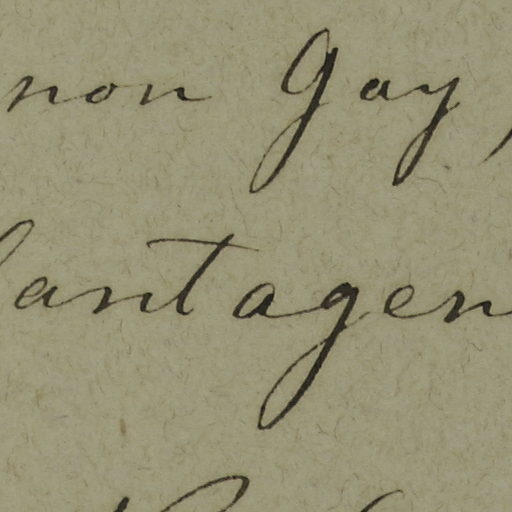 non Gay,
lantagen